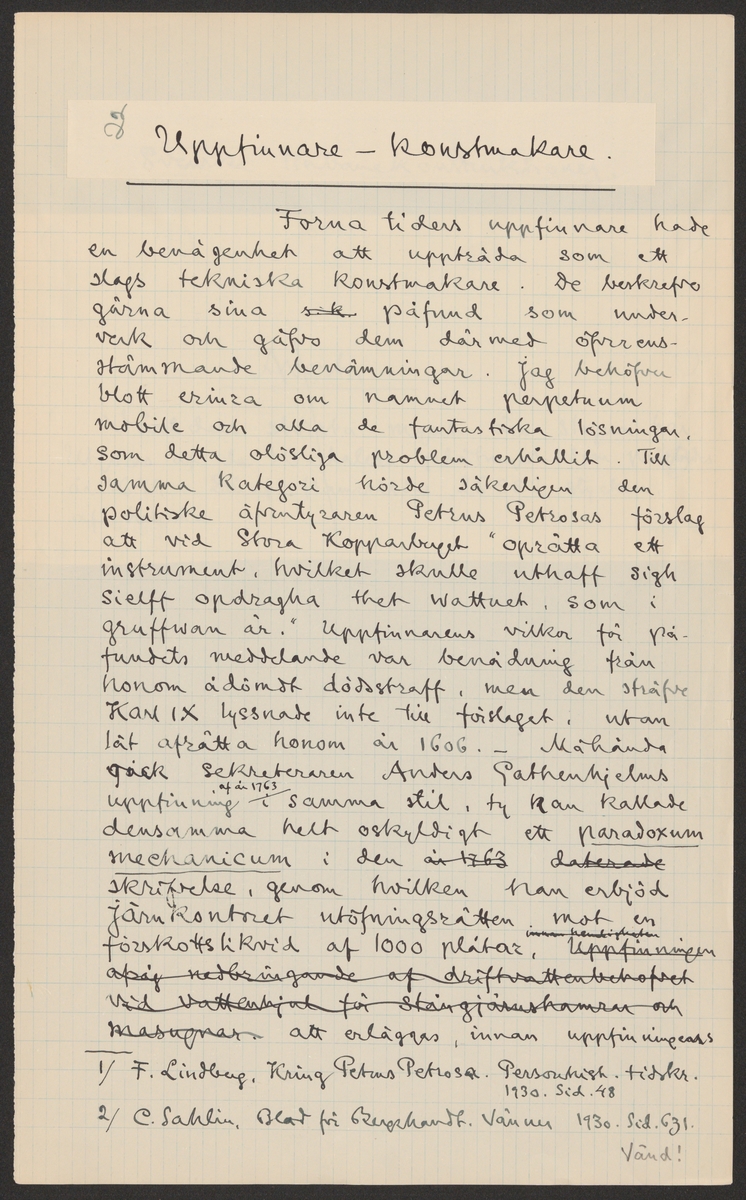 2
Uppfinnare – konstmakare.
Forna tiders uppfinnare hade
en benägenhet att uppträda som ett
slags tekniska konstmakare. De beskrefvo
gärna sina påfund som under-
verk och gåfvo dem därmed öfverens-
stämmande benämningar. Jag behöfver
blott erinra om namnet perpetuum
mobile och alla de fantastiska lösningar,
som detta olösliga problem erhållit. Till
samma kategori hörde säkerligen den
politiske äfventyraren Petrus Petrosas förslag
att vid Stora Kopparberget "oprätta ett
instrument, hvilket skulle uthaff sigh
sielff opdragha thet wattnet, som i
gruffwan är." Uppfinnarens vilkor för på-
fundets meddelande var benådning från
honom ådömdt dödsstraff, men den sträfve
Karl IX lyssnade inte till förslaget, utan
lät afrätta honom år 1606. – Måhända
gick sekreteraren Anders Gathenhjelms
af år 1763
uppfinning i samma stil, ty han kallade
densamma helt oskyldigt ett paradoxum
mechanicum i den år 1763 daterade
skrifvelse, genom hvilken han erbjöd
Järnkontoret utöfningsrätten mot en
innan hemligheten
förskottslikvid af 1000 plåtar, Uppfinningen
nedbringande af driftvattenbehofvet
vid vattenhjul för Stångjärnshamrar och
masugnar. att erläggas, innan uppfinningens
1/ F. Lindberg, Kring Petrus Petrosa. Personhist. tidskr.
1930. Sid. 48
2/ C. Sahlin, Blad för Bergshandt. Vänner 1930. Sid. 631.
Vänd!